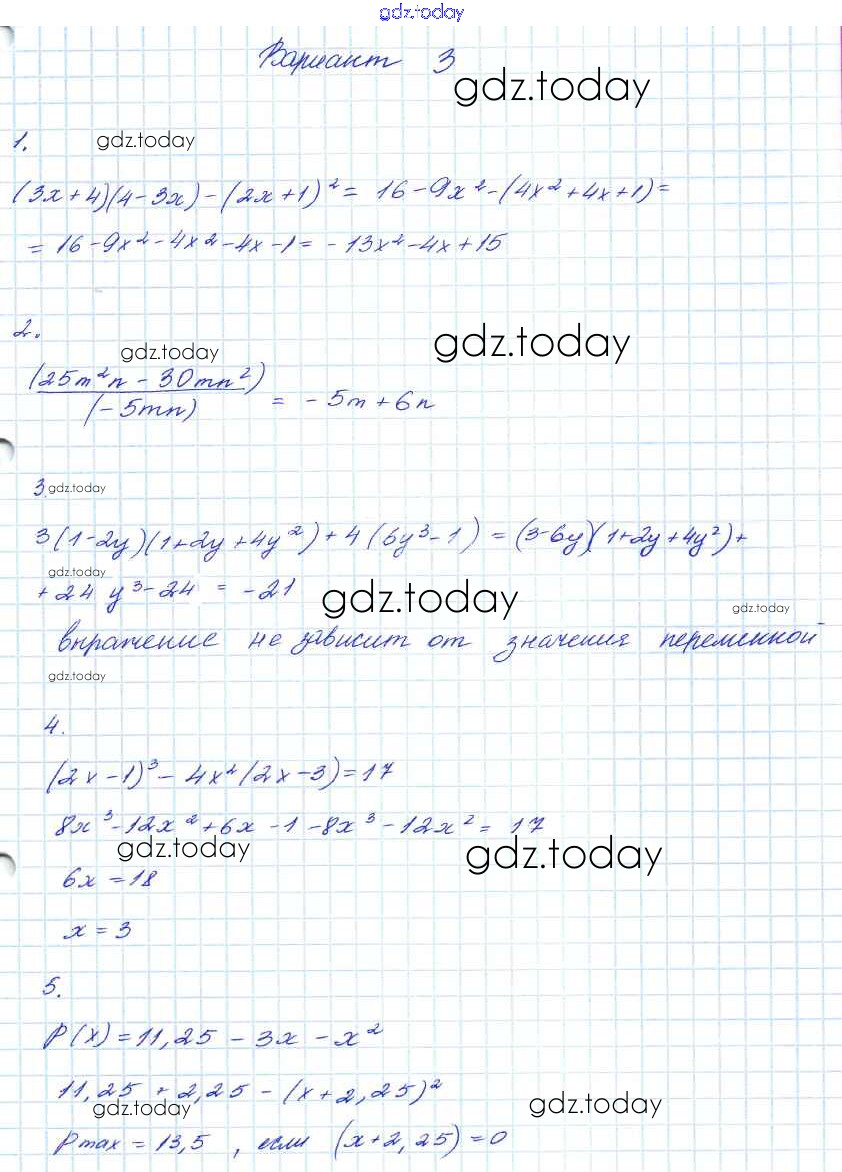 gdz.today
Вариант 3
gdz.today
1.
gdz.today
(3x+4)(4-3x)-(2x+1)²= 16-9x²-(4x²+4x+1)=
= 16-9x²-4x²-4x-1= -13x²-4x+15
2.
gdz.today
gdz.today
(25m²n - 30mn²)
(-5mn)
= -5m+6n
3.
gdz.today
3(1-2y)(1+2y+4y²)+4(6y³-1)=(3-6y)(1+2y+4y²)+
gdz.today
+24y³-24 = -21
gdz.today
gdz.today
выражение не зависит от значения переменной
gdz.today
4.
(2x-1)³-4x²(2x-3)=17
8x³-12x²+6x-1-8x³-12x²= 17
gdz.today
gdz.today
6x=18
x=3
5.
P(x)=11,25-3x-x²
11,25+2,25-(x+2,25)²
gdz.today
gdz.today
Pmax = 13,5, если (x+2,25)=0